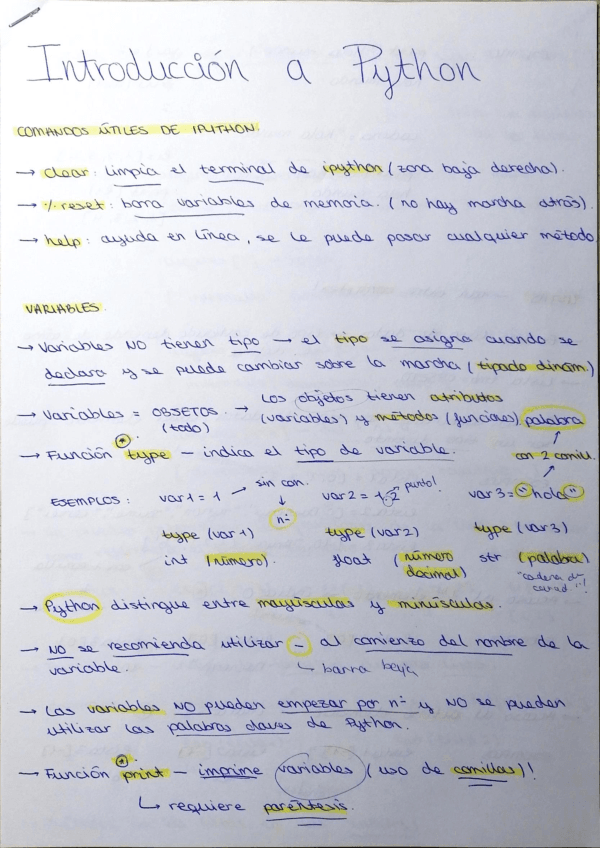 Introducción a Python
COMANDOS ÚTILES DE IPYTHON.
→ clear: limpia el terminal de ipython (zona baja derecha).
→ %reset: borra variables de memoria. (no hay marcha atrás).
→ help: ayuda en línea, se le puede pasar cualquier método
VARIABLES.
→ Variables NO tienen tipo → el tipo se asigna cuando se
declara y se puede cambiar sobre la marcha (tipado dinam.)
→ Variables = OBJETOS. → Los objetos tienen atributos
(todo) (variables) y métodos (funciones). palabra
→ Función type – indica el tipo de variable. con 2 comill.
EJEMPLOS: var1 = 1 → sin com. → nº var2 = 1.2 punto! var3 = "hola"
type (var1) type (var2) type (var3)
int (número). float (número decimal) str (palabra)
"cadena de
→ Python distingue entre mayúsculas y minúsculas.
→ NO se recomienda utilizar _ al comienzo del nombre de la
variable. ↳ barra baja
→ Las variables NO pueden empezar por nº y NO se pueden
utilizar las palabras claves de Python.
→ Función print – imprime variables (uso de comillas)!
↳ requiere paréntesis.